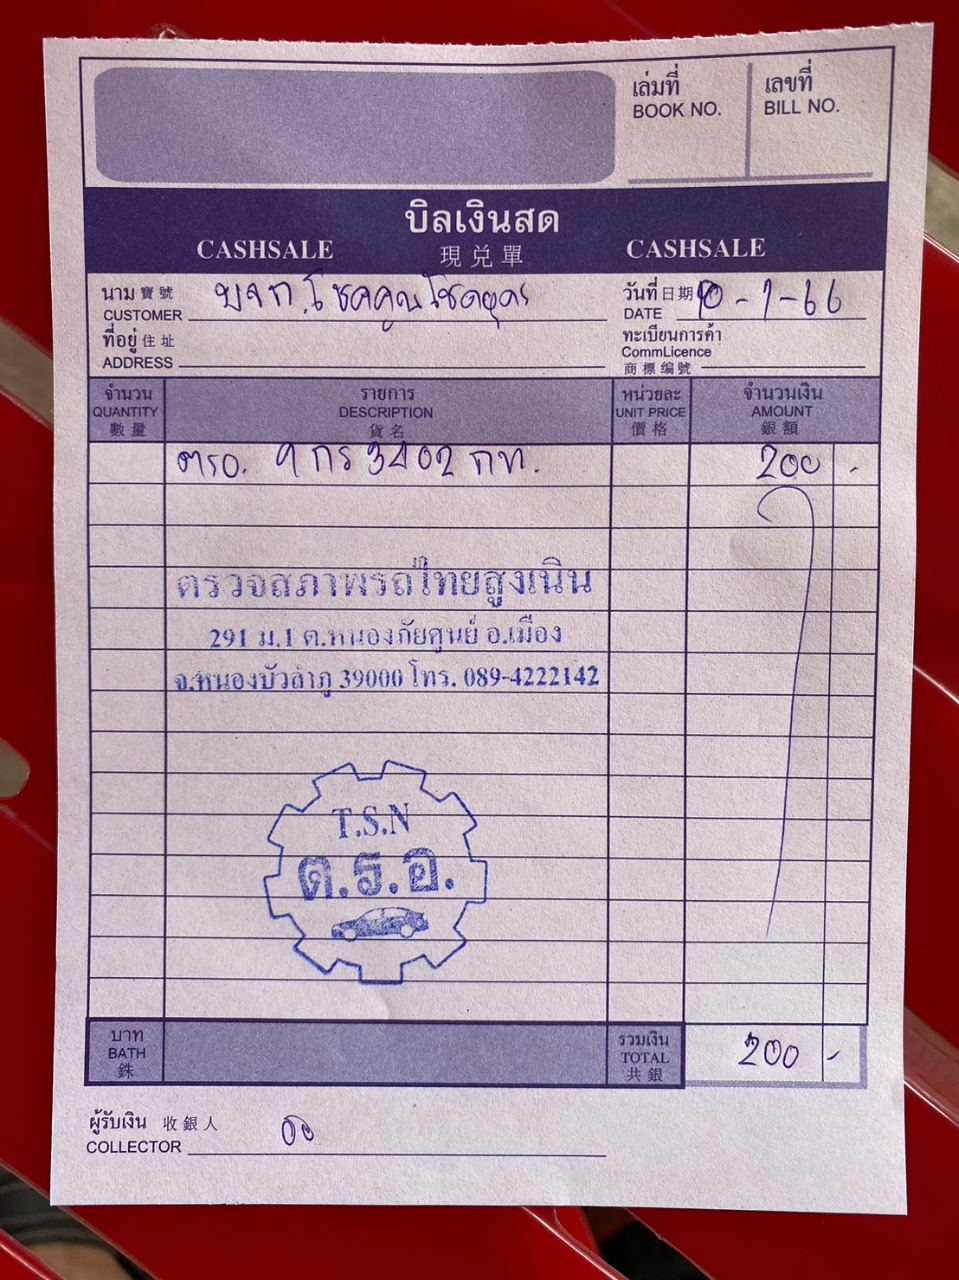 เล่มที่ เลขที่
BOOK NO. BILL NO.
บิลเงินสด
CASHSALE 現兑單 CASHSALE
นาม 寶號 บจก.โชคคูณโชคอุดร วันที่ 日期 10-1-66
CUSTOMER DATE
ที่อยู่ 住址 ทะเบียนการค้า
ADDRESS CommLicence
商標編號
จำนวน รายการ หน่วยละ จำนวนเงิน
QUANTITY DESCRIPTION UNIT PRICE AMOUNT
數量 貨名 價格 銀額
ตรอ. 1 กร 3402 กท. 200 -
ตรวจสภาพรถไทยสูงเนิน
291 ม.1 ต.หนองภัยศูนย์ อ.เมือง
จ.หนองบัวลำภู 39000 โทร. 089-4222142
T.S.N
ต.ร.อ.
บาท รวมเงิน
BATH TOTAL 200 -
銖 共銀
ผู้รับเงิน 收銀人
COLLECTOR